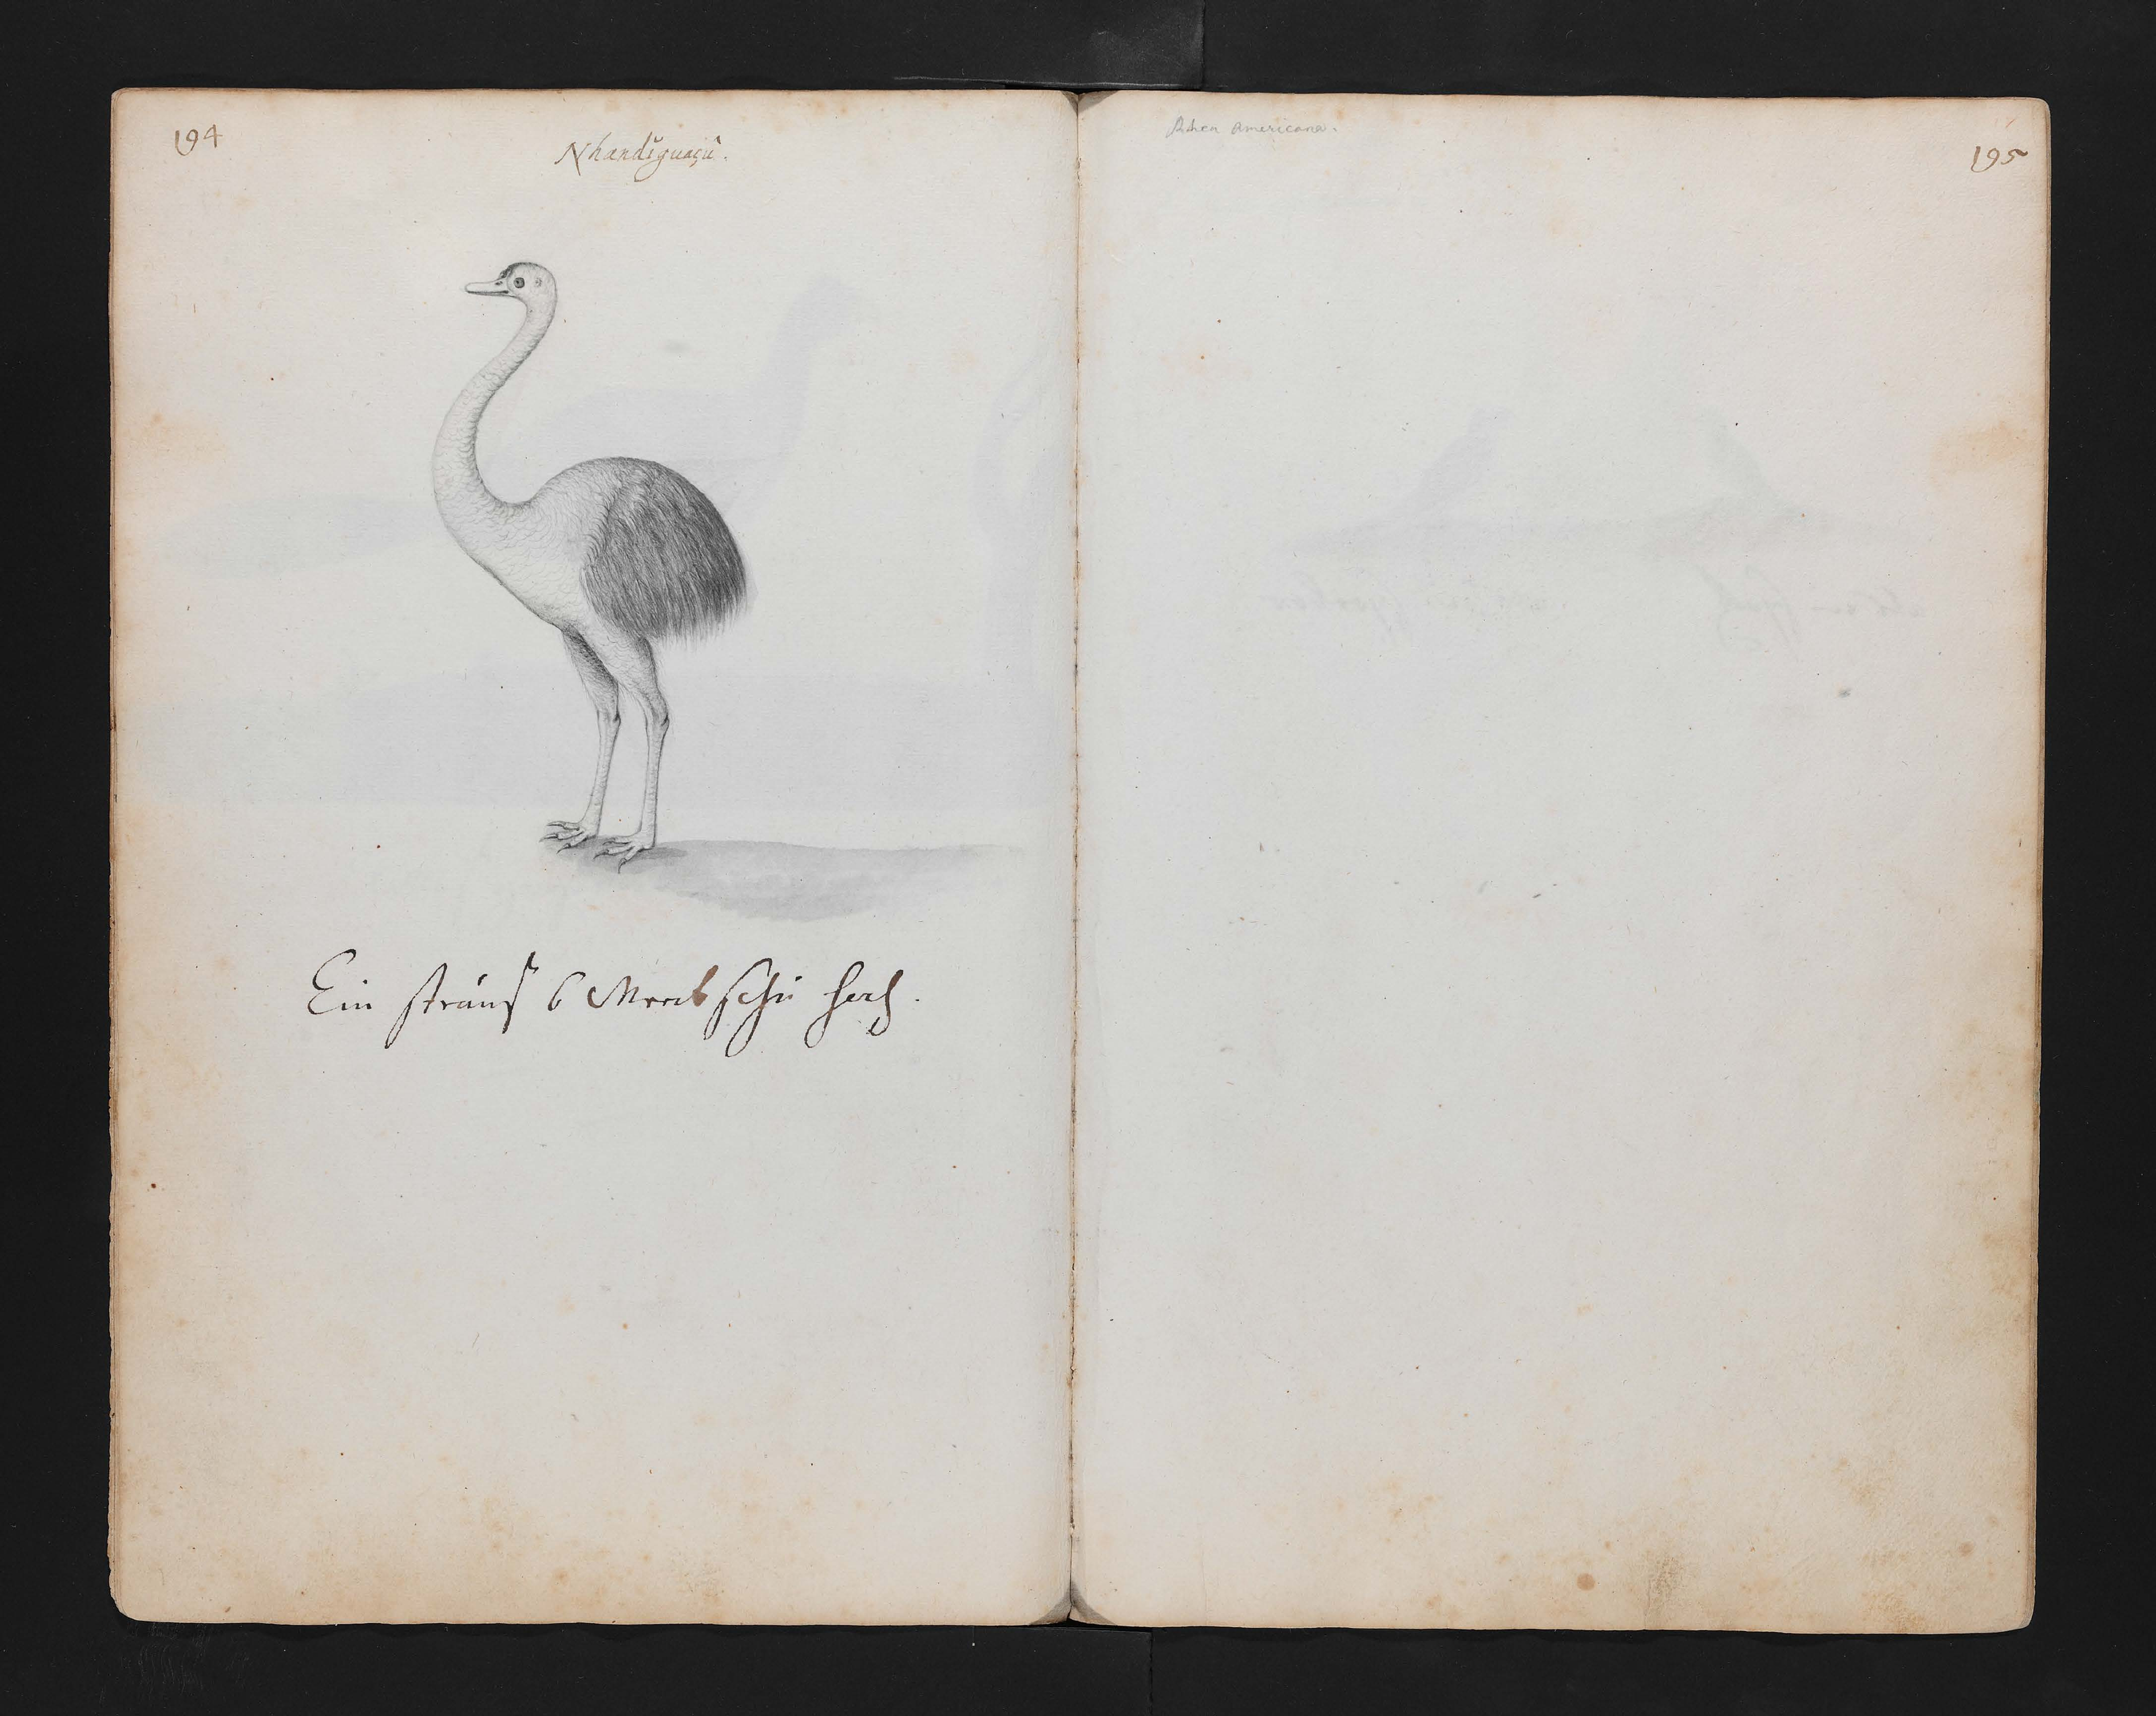 194
Nhandiguaçû.
Ein strauß 6 Werck schu hoch.
Rhea Americana.
195